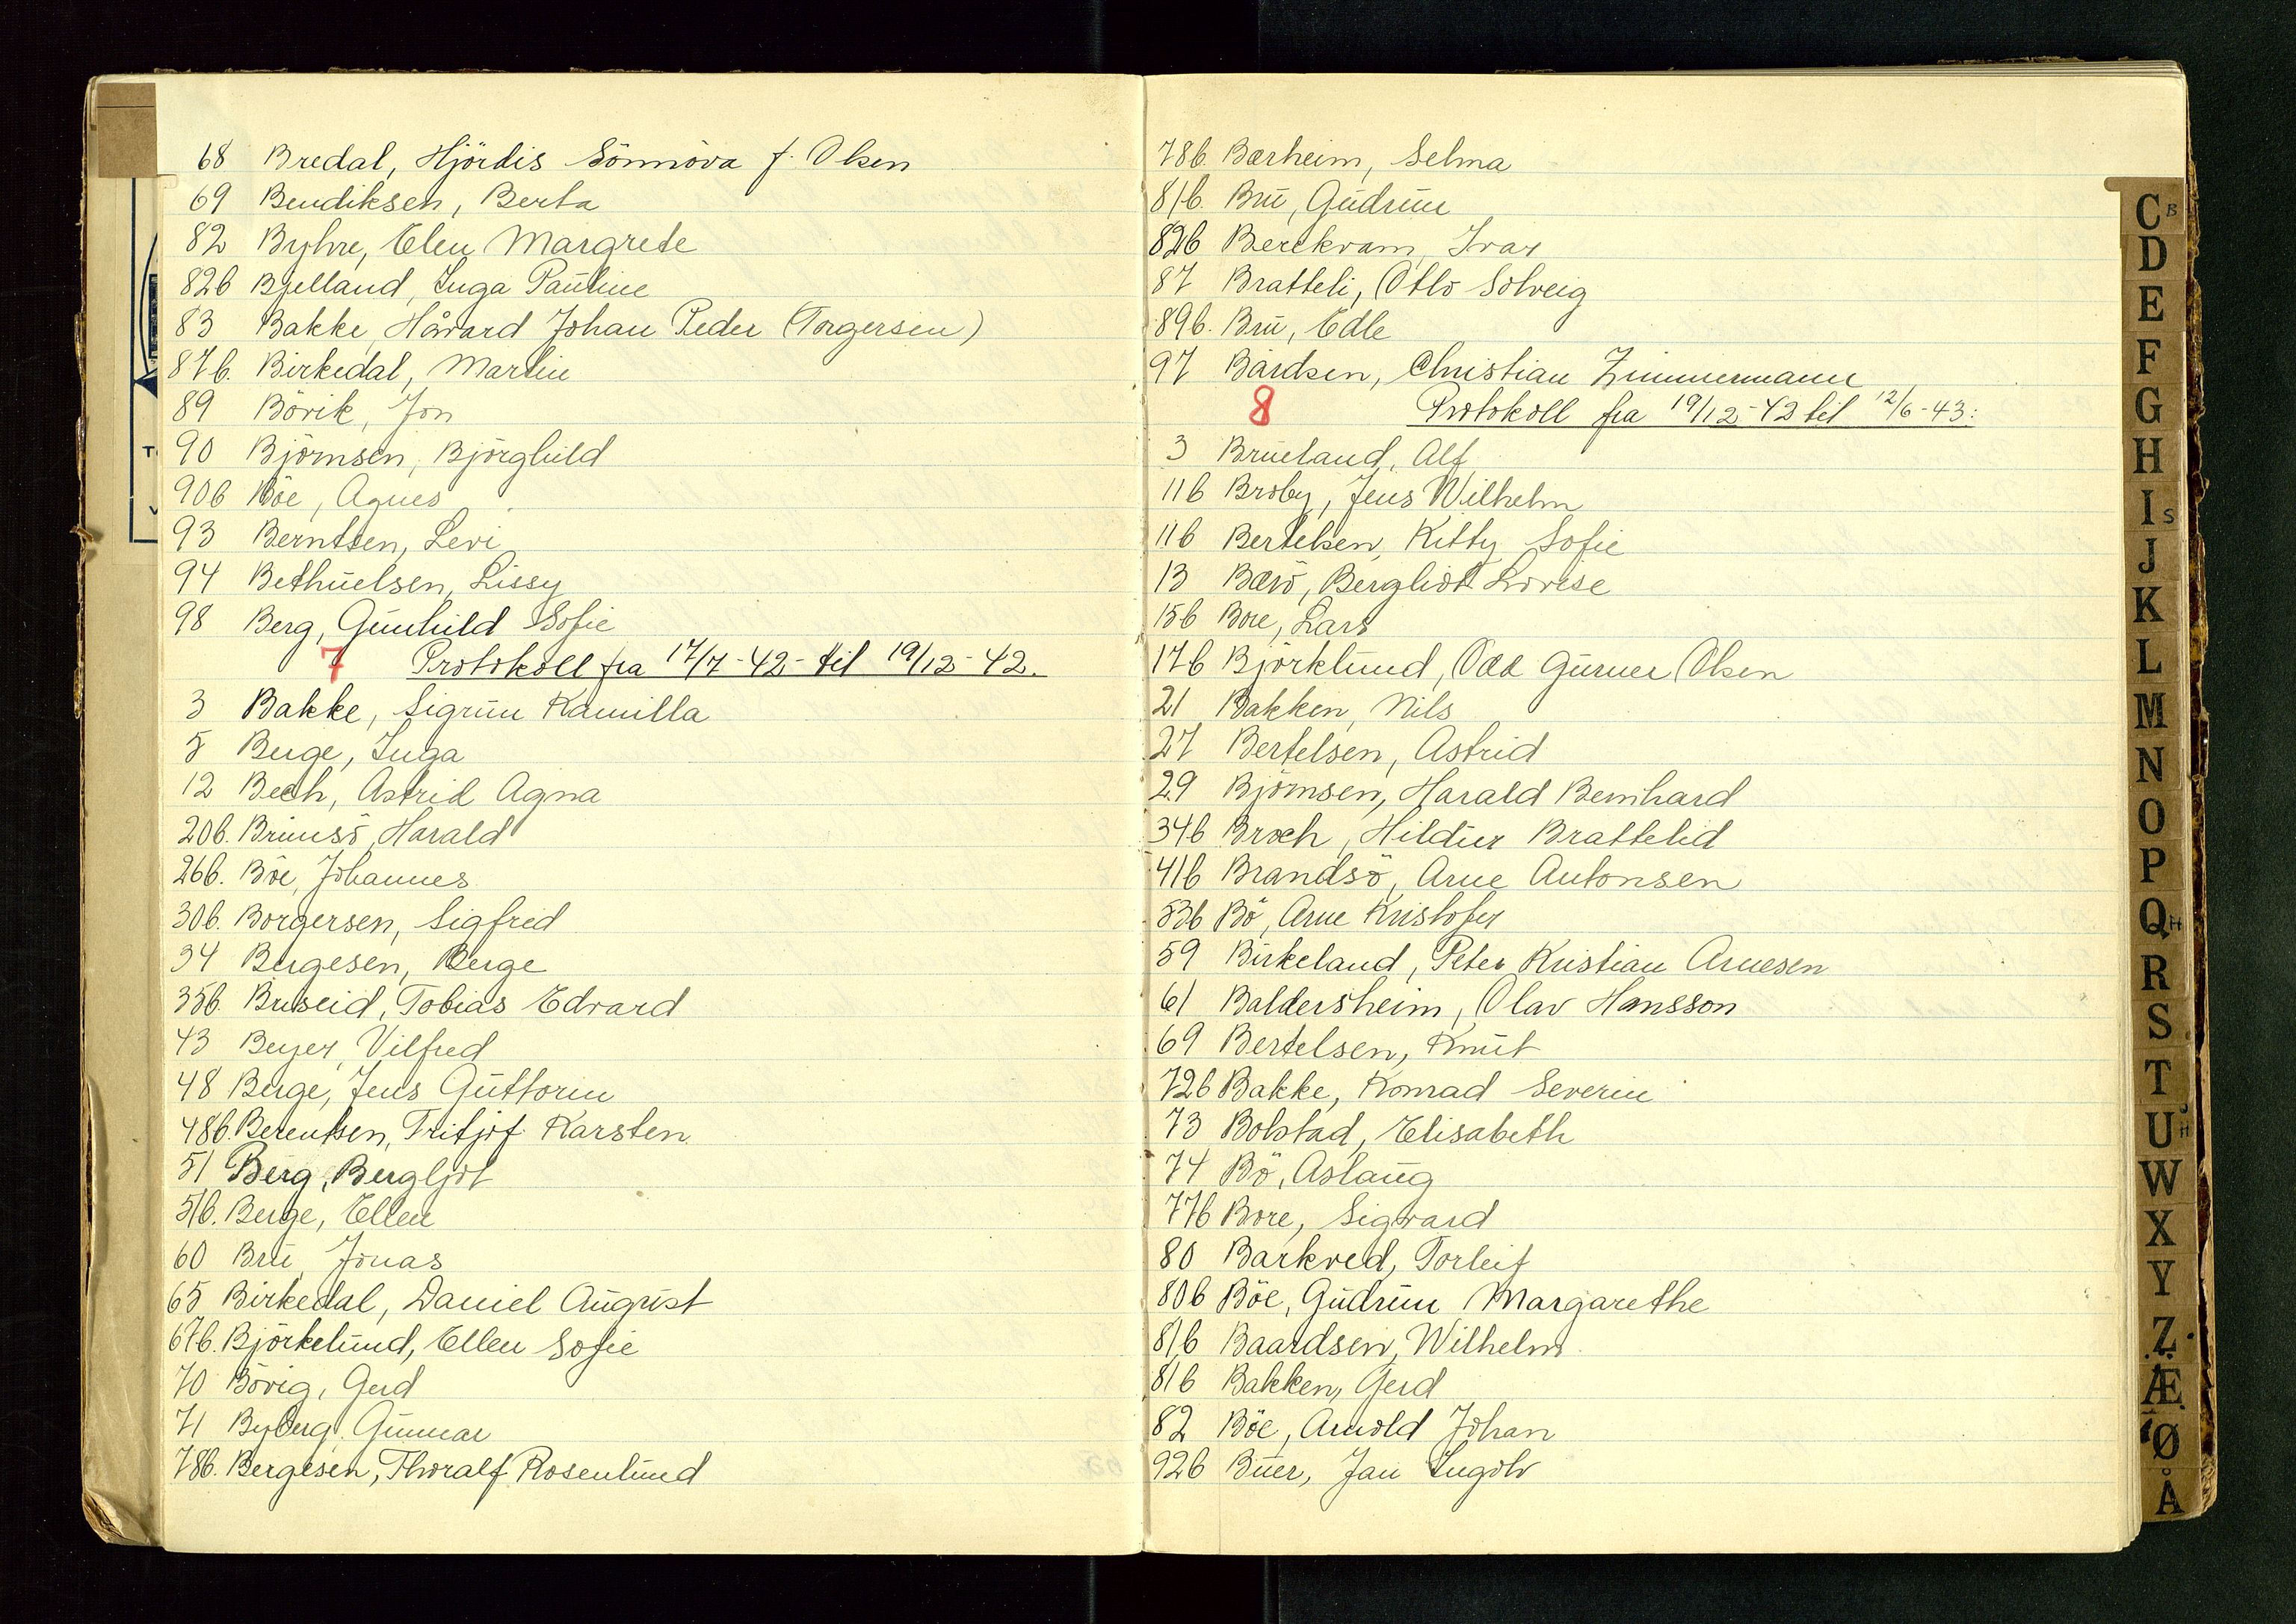 68 Bredal, Hjördis Sönnöva f. Olsen
69 Bendiksen, Berta
82 Byhre, Elen Margrete
82b Bjelland, Inga Pauline
83 Bakke, Håvard Johan Peder (Torgersen)
87b. Birkedal, Martin
89 Börik, Jon
90 Björnsen, Björghild
90b Böe, Agnes
93 Berntsen, Levi
94 Bethuelsen, Lissy
98 Berg, Gunhild Sofie
7 Protokoll fra 17/7-42- til 19/12-42.
3 Bakke, Sigrun Kamilla
5 Berge, Inga
12 Bech, Astrid Agna
20b. Brimsö, Harald
26b. Böe, Johannes
30b. Borgersen, Sigfred
34 Bergesen, Berge
35b. Buseid, Tobias Edvard
43 Beyer, Vilfred
48 Berge, Jens Guttorm
48b. Berentsen, Fritjof Karsten
51 Berg, Bergljot
51b. Berge, Ellen
60 Bru, Jonas
65 Birkedal, Daniel August
67b. Björkelund, Ellen Sofie
70 Bövig, Gerd
71 Byberg, Gunnar
78b. Bergesen, Thoralf Rosenlund
78b. Bærheim, Selma
81b. Bru, Gudrun
82b Berekvam, Ivar
87 Bratteli, Otto Solveig
89b. Bru, Edle
97 Bårdsen, Christian Zimmermann
8 Protokoll fra 19/12-42 til 12/6-43:
3 Brueland, Alf
11b Broby, Jens Wilhelm
11b Bertelsen, Kitty Sofie
13 Bærö, Bergliot Lovise
15b Bore, Lars
17b Björklund, Odd Gurner Olsen
21 Bakken, Nils
27 Bertelsen, Astrid
29 Björnsen, Harald Bernhard
34b Broch, Hildur Brattelid
41b Brandsö, Arne Antonsen
53b Bö, Arne Kristofer
59 Birkeland, Peter Kristian Arnesen
61 Baldersheim, Olav Hansson
69 Bertelsen, Knut
72b Bakke, Konrad Severin
73 Bolstad, Elisabeth
74 Bö, Aslaug
77b Bore, Sigvard
80 Barkved, Torleif
80b Böe, Gudrun Margarethe
81b Baardsen, Wilhelm
81b Bakken, Gerd
82 Böe, Arnold Johan
92b Buer, Jan Ingolv
C B
D
E
F
G
H
I S
J
K
L
M
N
O
P
Q H
R
S
T
U H
W
X
Y
Z
Æ
Ø
Å